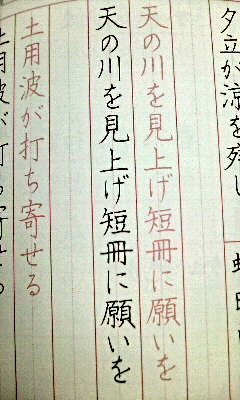 夕立が涼を残し
天の川を見上げ短冊に願いを
天の川を見上げ短冊に願いを
土用波が打ち寄せる
土用波が打ち寄せる